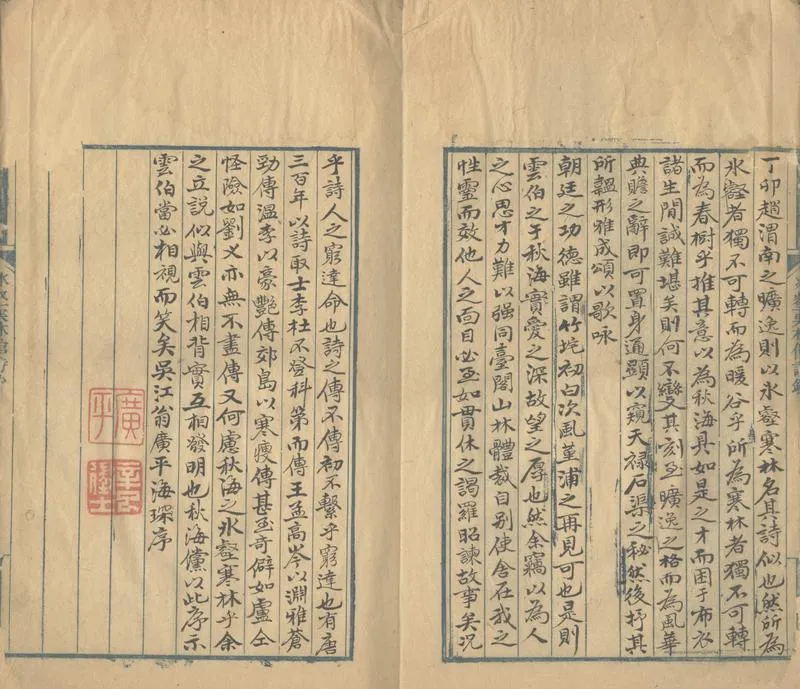 丁卯趙渭南之曠逸則以氷壑寒林名其詩似也然所為
氷壑者獨不可轉而為暖谷乎所為寒林者獨不可轉
而為春樹乎推其意以為秋海具如是之才而困于布衣
諸生間誠難堪矣則何不變其刻至曠逸之格而為風華
典贍之辭即可置身通顯以窺天祿石渠之秘然後抒其
所韞形雅成頌以歌咏
朝廷之功德雖謂竹垞初白次風堇浦之再見可也是則
雲伯之于秋海實愛之深故望之厚也然余竊以為人
之心思才力難以强同臺閣山林體裁自別使舍在我之
性靈而效他人之面目必至如貫休之謁羅昭諫故事矣況
乎詩人之窮達命也詩之傳不傳初不繫乎窮達也有唐
三百年以詩取士李杜不登科第而傳王孟高岑以淵雅蒼
勁傳溫李以豪艷傳郊島以寒瘦傳甚至奇僻如盧仝
怪險如劉乂亦無不盡傳又何慮秋海之氷壑寒林乎余
之立說似與雲伯相背實互相發明也秋海儻以此序示
雲伯當必相視而笑矣吳江翁廣平海琛序
廣平